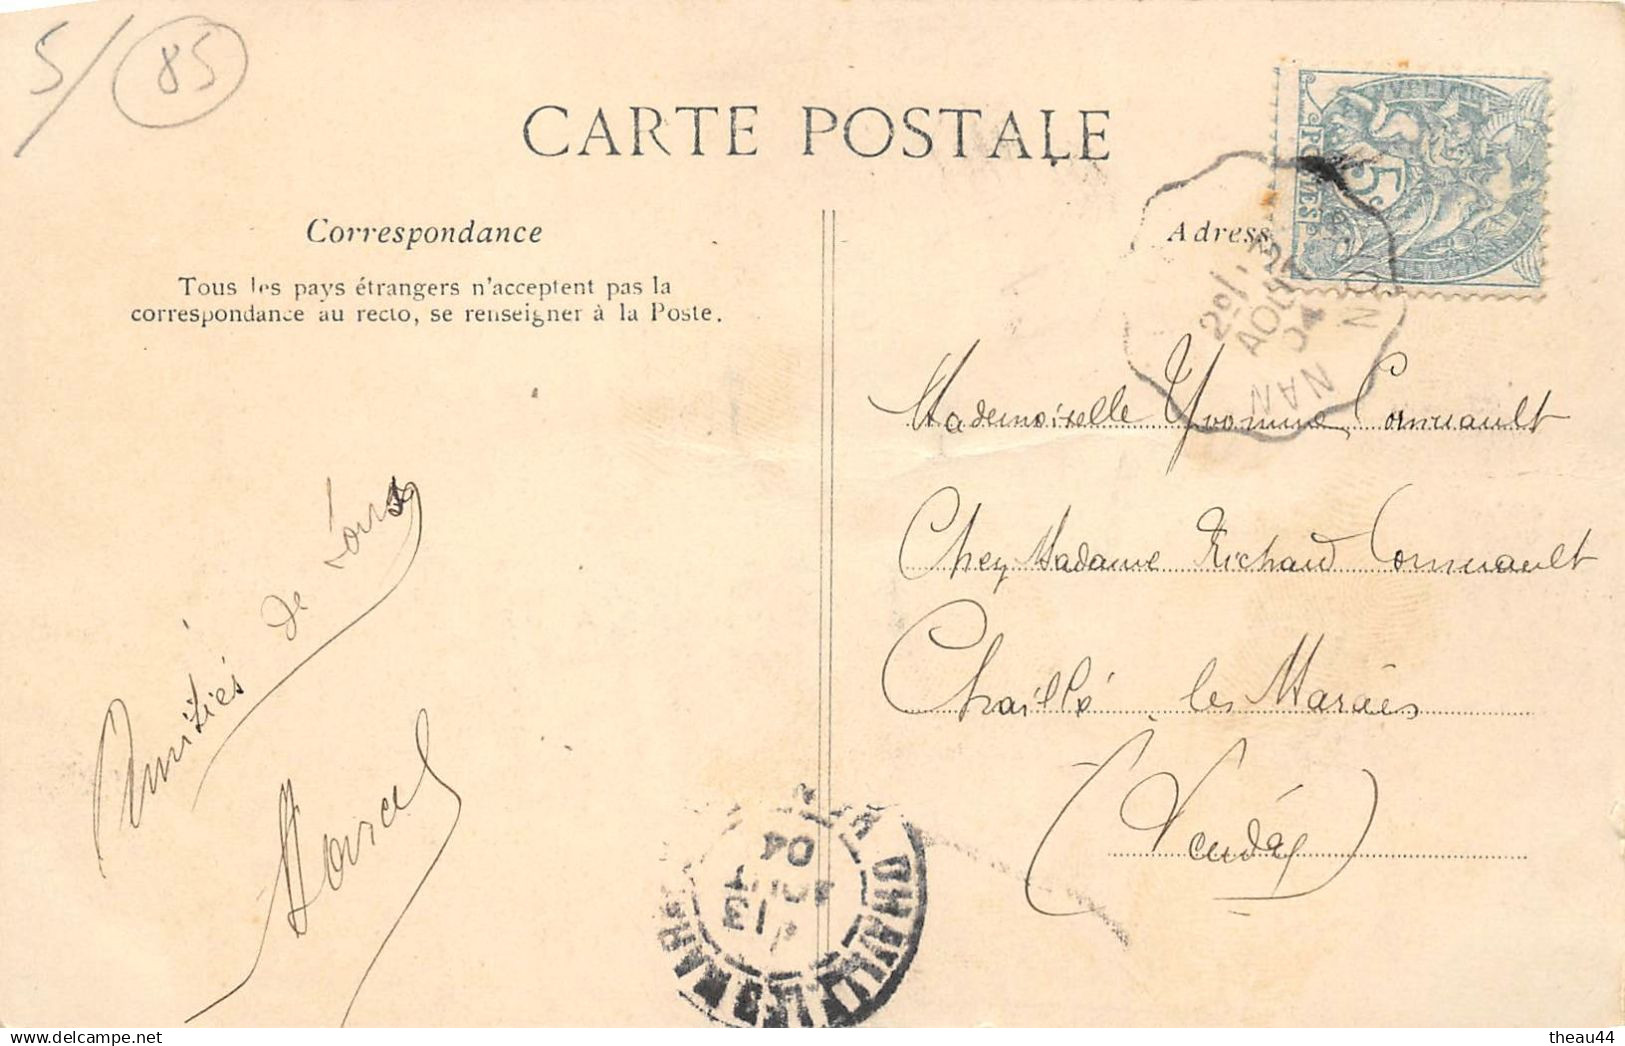 5/ 85
CARTE POSTALE
Correspondance
Tous les pays étrangers n'acceptent pas la
correspondance au recto, se renseigner à la Poste.
Adresse
POSTES
5c
AOUT
04
NAN
Mademoiselle Yvonne Cornuault
Chez Madame Richard Cornuault
Chaillé les Marais
(Vendée)
Amitiés de tous
Marcel
13
AOUT
04
delcampe.net
theau44